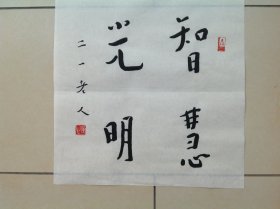 智慧
光明
二一老人